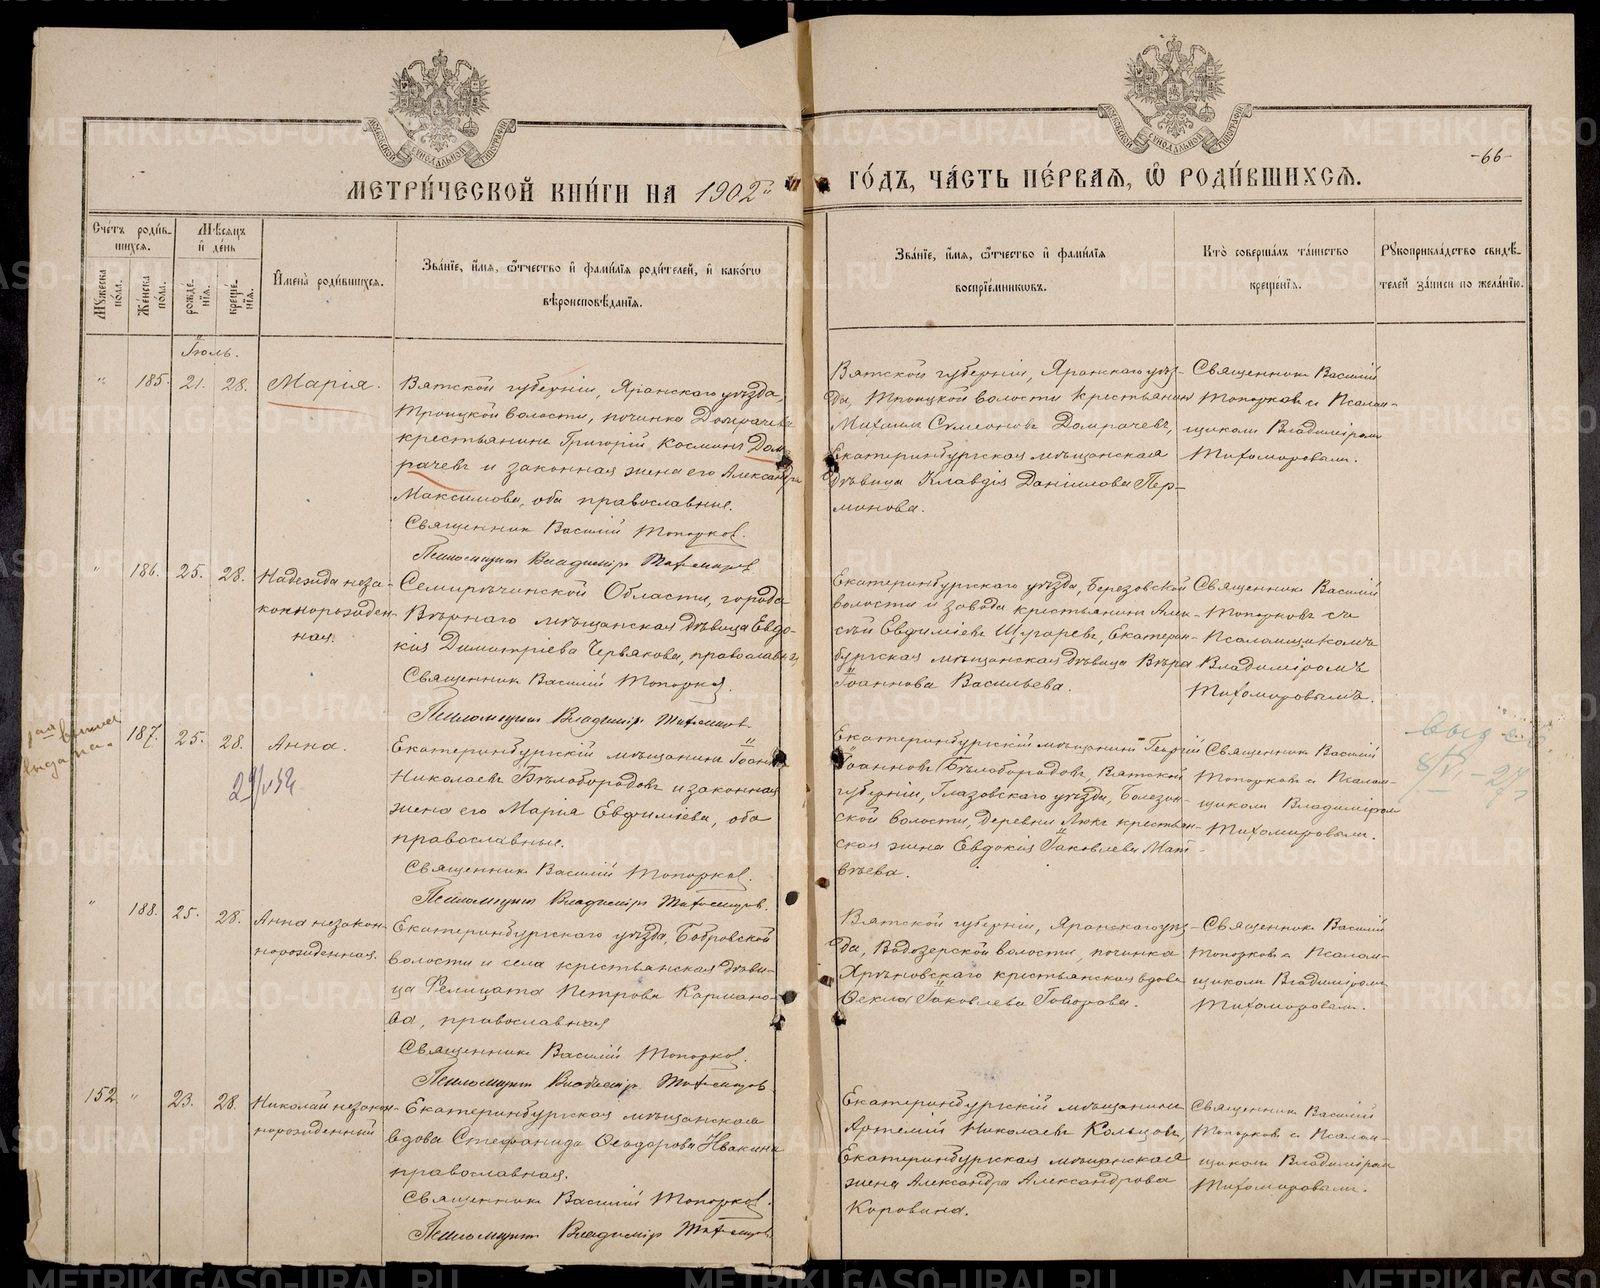 МЕТРИ́ЧЕСКОЙ КНИ́ГИ НА 1902й
ГО́ДЪ, ЧА́СТЬ ПЕ́РВАЯ, Ѿ РОДИ́ВШИХСѦ.
-66-
Счетъ роди́в-
шихся.
Мꙋжеска по́ла.
Же́нска по́ла.
Мѣ́сѧцъ
и де́нь
рожде́-
нїѧ.
креще́-
нїѧ.
И҆мена̀ роди́вшихсѧ.
Зва́нїе, и҆́мѧ, ѻ҆́тчество и҆ фами́лїѧ роди́телей, и҆ како́гѡ
вѣроисповѣ́данїѧ.
Зва́нїе, и҆́мѧ, ѻ҆́тчество и҆ фами́лїѧ
воспрїе́мникѡвъ.
Кто̀ соверша́лъ та́инство
креще́нїѧ.
Рꙋкоприкла́дство свидѣ́-
телей за́писи по жела́нїю.
Іюль.
" 185. 21. 28. Марія.
Вятской губерніи, Яранскаго уѣзда,
Троицкой волости, починка Домрачева
крестьянинъ Григорій Косминъ Дом-
рачевъ и законная жена его Александра
Максимова, оба православные.
Священникъ Василій Топорковъ.
Псаломщикъ Владиміръ Тихомировъ.
Вятской губерніи, Яранскаго уѣз-
да, Троицкой волости крестьянинъ
Михаилъ Сѵмеоновъ Домрачевъ,
Екатеринбургская мѣщанская
дѣвица Клавдія Даніилова Пер-
минова.
Священникъ Василій
Топорковъ съ Псалом-
щикомъ Владиміромъ
Тихомировымъ.
" 186. 25. 28. Надежда неза-
коннорожден-
ная.
Семирѣчинской Области, города
Вѣрнаго мѣщанская дѣвица Евдо-
кія Димитріева Червякова, православная
Священникъ Василій Топорковъ.
Псаломщикъ Владиміръ Тихомировъ.
Екатеринбургскаго уѣзда, Березовской
волости и завода крестьянинъ Алек-
сѣй Евфиміевъ Шугаревъ, Екатерин-
бургская мѣщанская дѣвица Вѣра
Іоаннова Васильева.
Священникъ Василій
Топорковъ съ
Псаломщикомъ
Владиміромъ
Тихомировымъ.
выдана.
187. 25. 28. Анна.
Екатеринбургскій мѣщанинъ Іоаннъ
Николаевъ Бѣлобородовъ и законная
жена его Марія Евфиміева, оба
православные.
Священникъ Василій Топорковъ.
Псаломщикъ Владиміръ Тихомировъ.
Екатеринбургскій мѣщанинъ Георгій
Іоанновъ Бѣлобородовъ, Вятской
губерніи, Глазовскаго уѣзда, Болезин-
ской волости, деревни Люкъ крестьян-
ская жена Евдокія Іаковлева Мат-
вѣева.
Священникъ Василій
Топорковъ съ Псалом-
щикомъ Владиміромъ
Тихомировымъ.
8/VI-27
" 188. 25. 28. Анна незакон-
норожденная.
Екатеринбургскаго уѣзда, Бобровской
волости и села крестьянская дѣви-
ца Фелицата Петрова Кармано-
ва, православная
Священникъ Василій Топорковъ.
Псаломщикъ Владиміръ Тихомировъ.
Вятской губерніи, Яранскаго уѣз-
да, Водозерской волости, починка
крестьянская вдова
Ѳекла Іаковлева Говорова.
Священникъ Василій
Топорковъ съ Псалом-
щикомъ Владиміромъ
Тихомировымъ.
152. " 23. 28. Николай незакон-
норожденный
Екатеринбургская мѣщанская
вдова Стефанида Ѳеодорова Ивакина
православная.
Священникъ Василій Топорковъ.
Псаломщикъ Владиміръ Тихомировъ.
Екатеринбургскій мѣщанинъ
Артемій Николаевъ Кольцовъ,
Екатеринбургская мѣщанская
жена Александра Александрова
Коровина.
Священникъ Василій
Топорковъ съ Псалом-
щикомъ Владиміромъ
Тихомировымъ.
METRIKI.GASO-URAL.RU